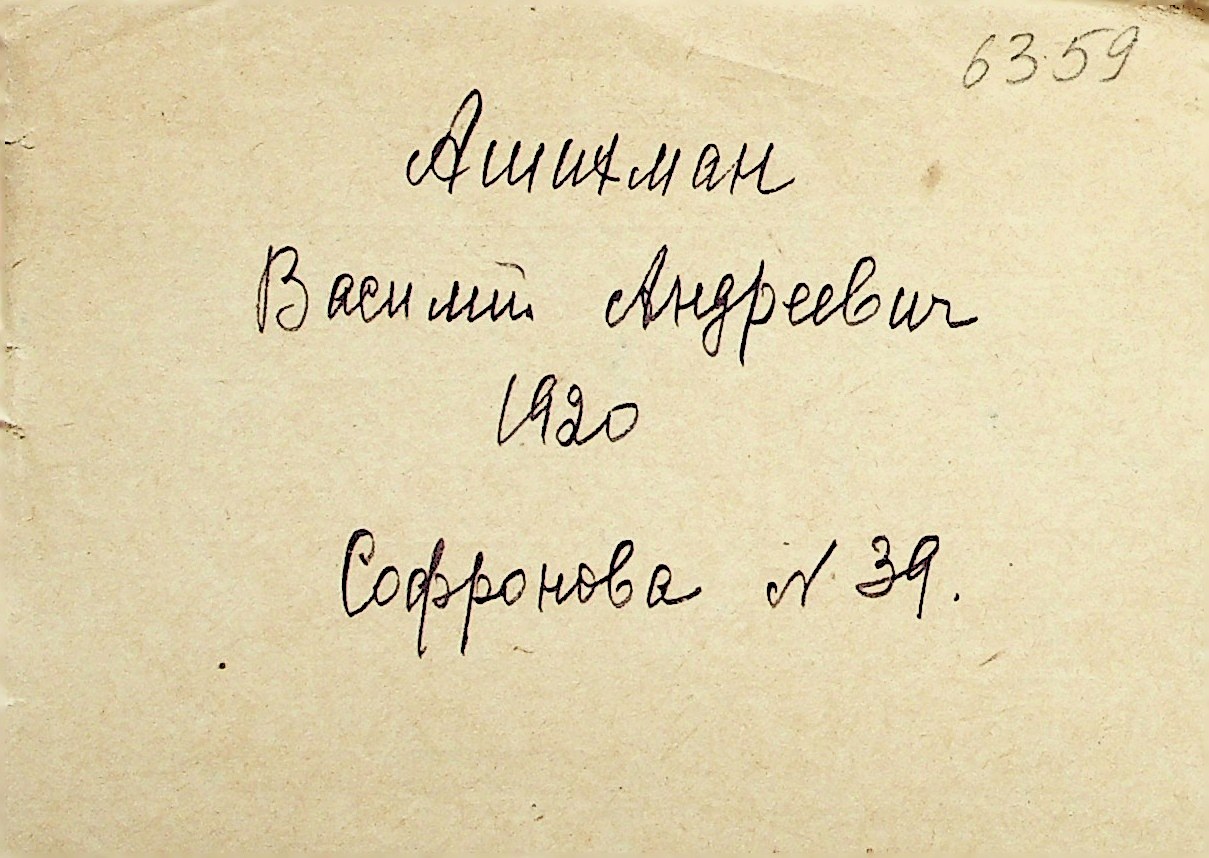 6359
Ашихман
Василий Андреевич
1920
Софронова N 39.